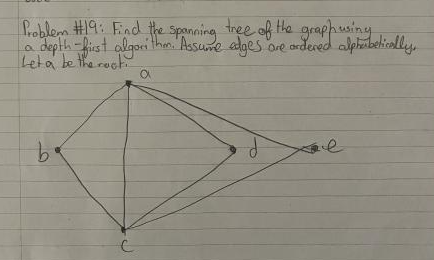 Problem #19: Find the spanning tree of the graph using
a depth-first algorithm. Assume edges are ordered alphabetically.
Let a be the root.
a
b
d
e
c